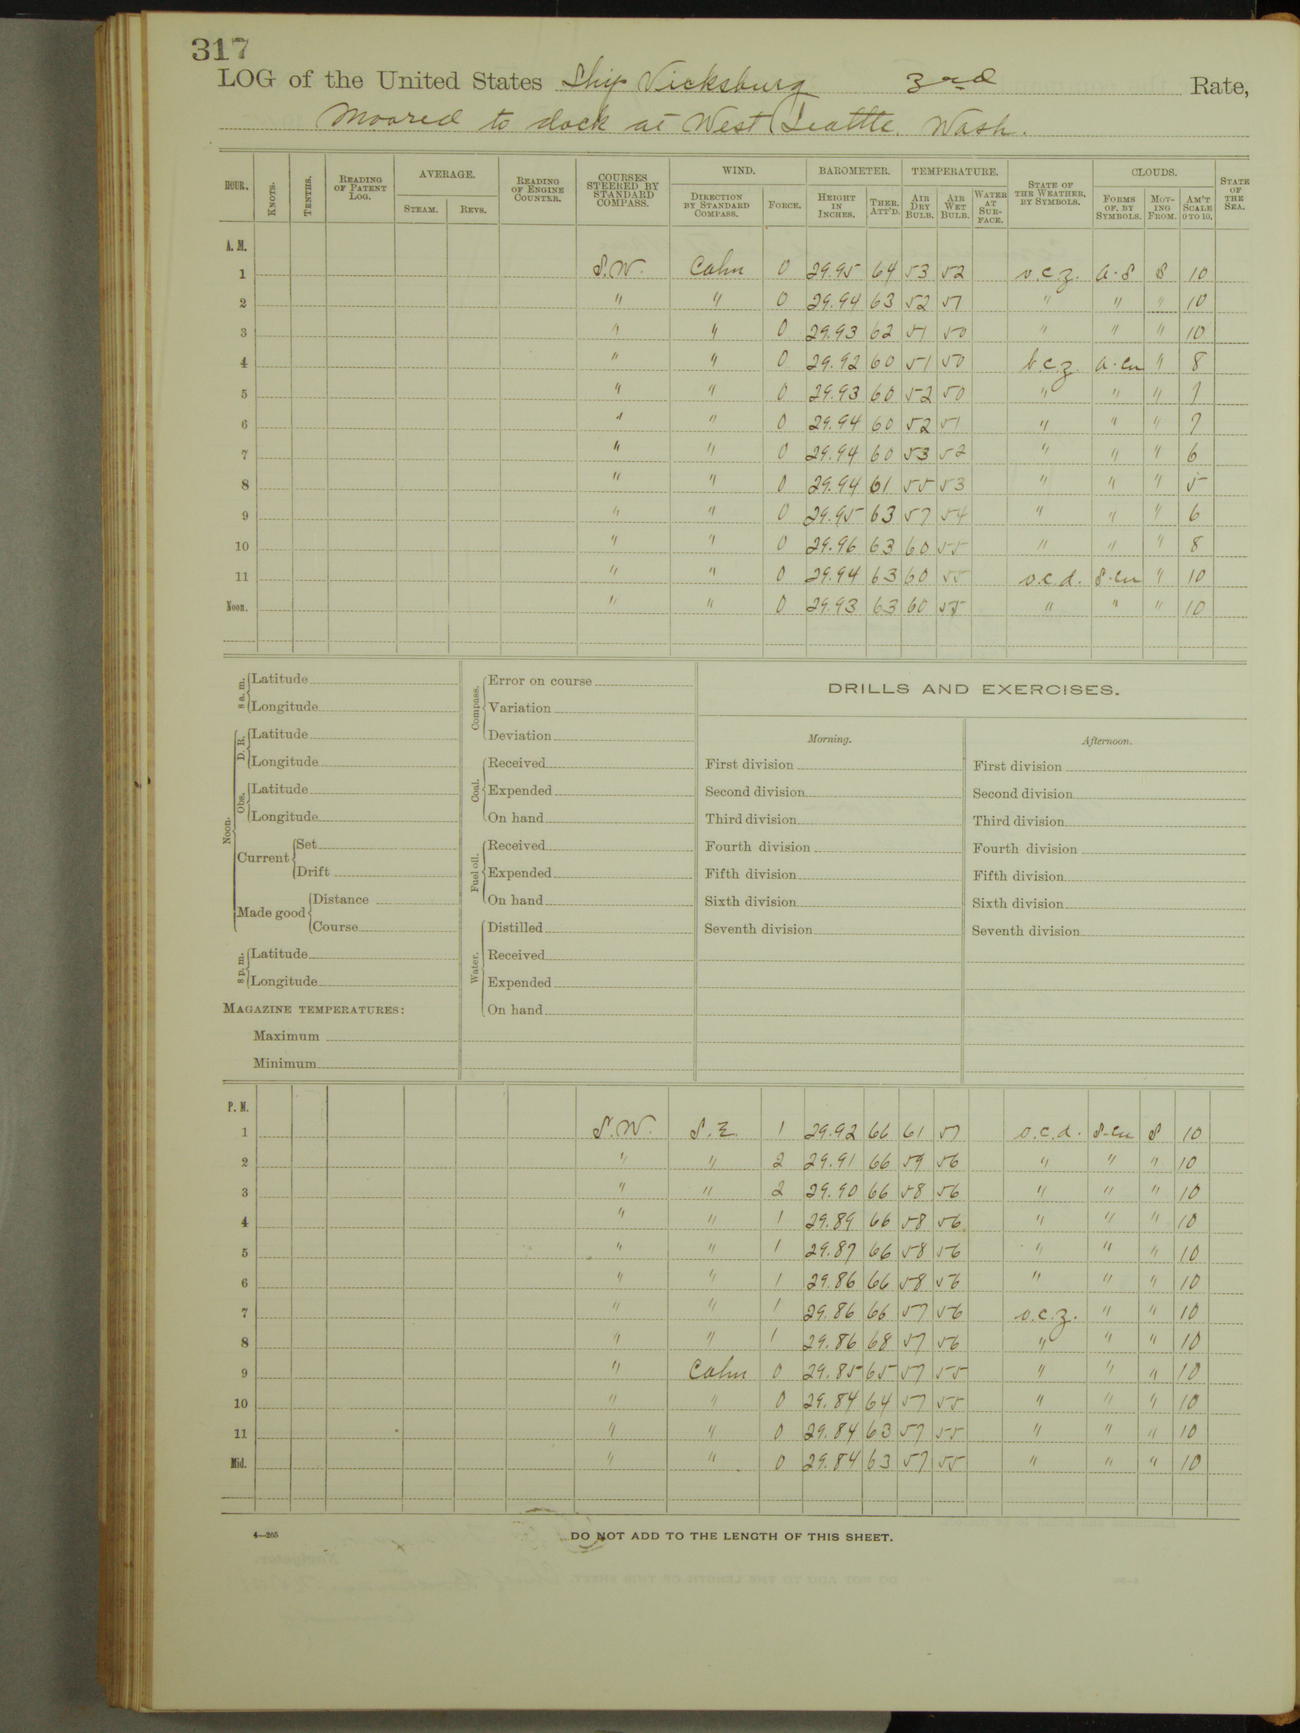 317
LOG of the United States Ship Vicksburg 3rd Rate,
Moored to dock at West Seattle, Wash.
HOUR. KNOTS. TENTHS. READING OF PATENT LOG. AVERAGE. STEAM. REVS. READING OF ENGINE COUNTER. COURSES STEERED BY STANDARD COMPASS. WIND. DIRECTION BY STANDARD COMPASS. FORCE. BAROMETER. HEIGHT IN INCHES. THER. ATT'D. TEMPERATURE. AIR DRY BULB. AIR WET BULB. WATER AT SURFACE. STATE OF THE WEATHER, BY SYMBOLS. CLOUDS. FORMS OF, BY SYMBOLS. MOVING FROM. AM'T SCALE 0 TO 10. STATE OF THE SEA.
A. M.
1 S.W. Calm 0 29.95 64 53 52 o.c.z. a-s S 10
2 " " 0 29.94 63 52 51 " " " 10
3 " " 0 29.93 62 51 50 " " " 10
4 " " 0 29.92 60 51 50 b.c.z. a-cu " 8
5 " " 0 29.93 60 52 50 " " " 7
6 " " 0 29.94 60 52 51 " " " 7
7 " " 0 29.94 60 53 52 " " " 6
8 " " 0 29.94 61 55 53 " " " 5
9 " " 0 29.95 63 57 54 " " " 6
10 " " 0 29.96 63 60 55 " " " 8
11 " " 0 29.94 63 60 55 o.c.d. s-cu " 10
Noon. " " 0 29.93 63 60 55 " " " 10
8 a. m. Latitude
Longitude
Noon. D. R. Latitude
Longitude
Obs. Latitude
Longitude
Current Set
Drift
Made good Distance
Course
8 p. m. Latitude
Longitude
MAGAZINE TEMPERATURES:
Maximum
Minimum
Compass. Error on course
Variation
Deviation
Coal. Received
Expended
On hand
Fuel oil. Received
Expended
On hand
Water. Distilled
Received
Expended
On hand
DRILLS AND EXERCISES.
Morning. Afternoon.
First division First division
Second division Second division
Third division Third division
Fourth division Fourth division
Fifth division Fifth division
Sixth division Sixth division
Seventh division Seventh division
P. M.
1 S.W. S.E. 1 29.92 66 61 57 o.c.d. s-cu S 10
2 " " 2 29.91 66 59 56 " " " 10
3 " " 2 29.90 66 58 56 " " " 10
4 " " 1 29.89 66 58 56 " " " 10
5 " " 1 29.87 66 58 56 " " " 10
6 " " 1 29.86 66 58 56 " " " 10
7 " " 1 29.86 66 57 56 o.c.z. " " 10
8 " " 1 29.86 68 57 56 " " " 10
9 " Calm 0 29.85 65 57 55 " " " 10
10 " " 0 29.84 64 57 55 " " " 10
11 " " 0 29.84 63 57 55 " " " 10
Mid. " " 0 29.84 63 57 55 " " " 10
4—265
DO NOT ADD TO THE LENGTH OF THIS SHEET.